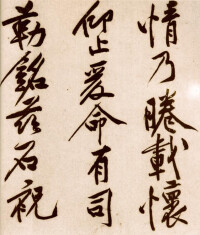 情乃睠載懷
仰止爰命有司
勒銘茲石祝